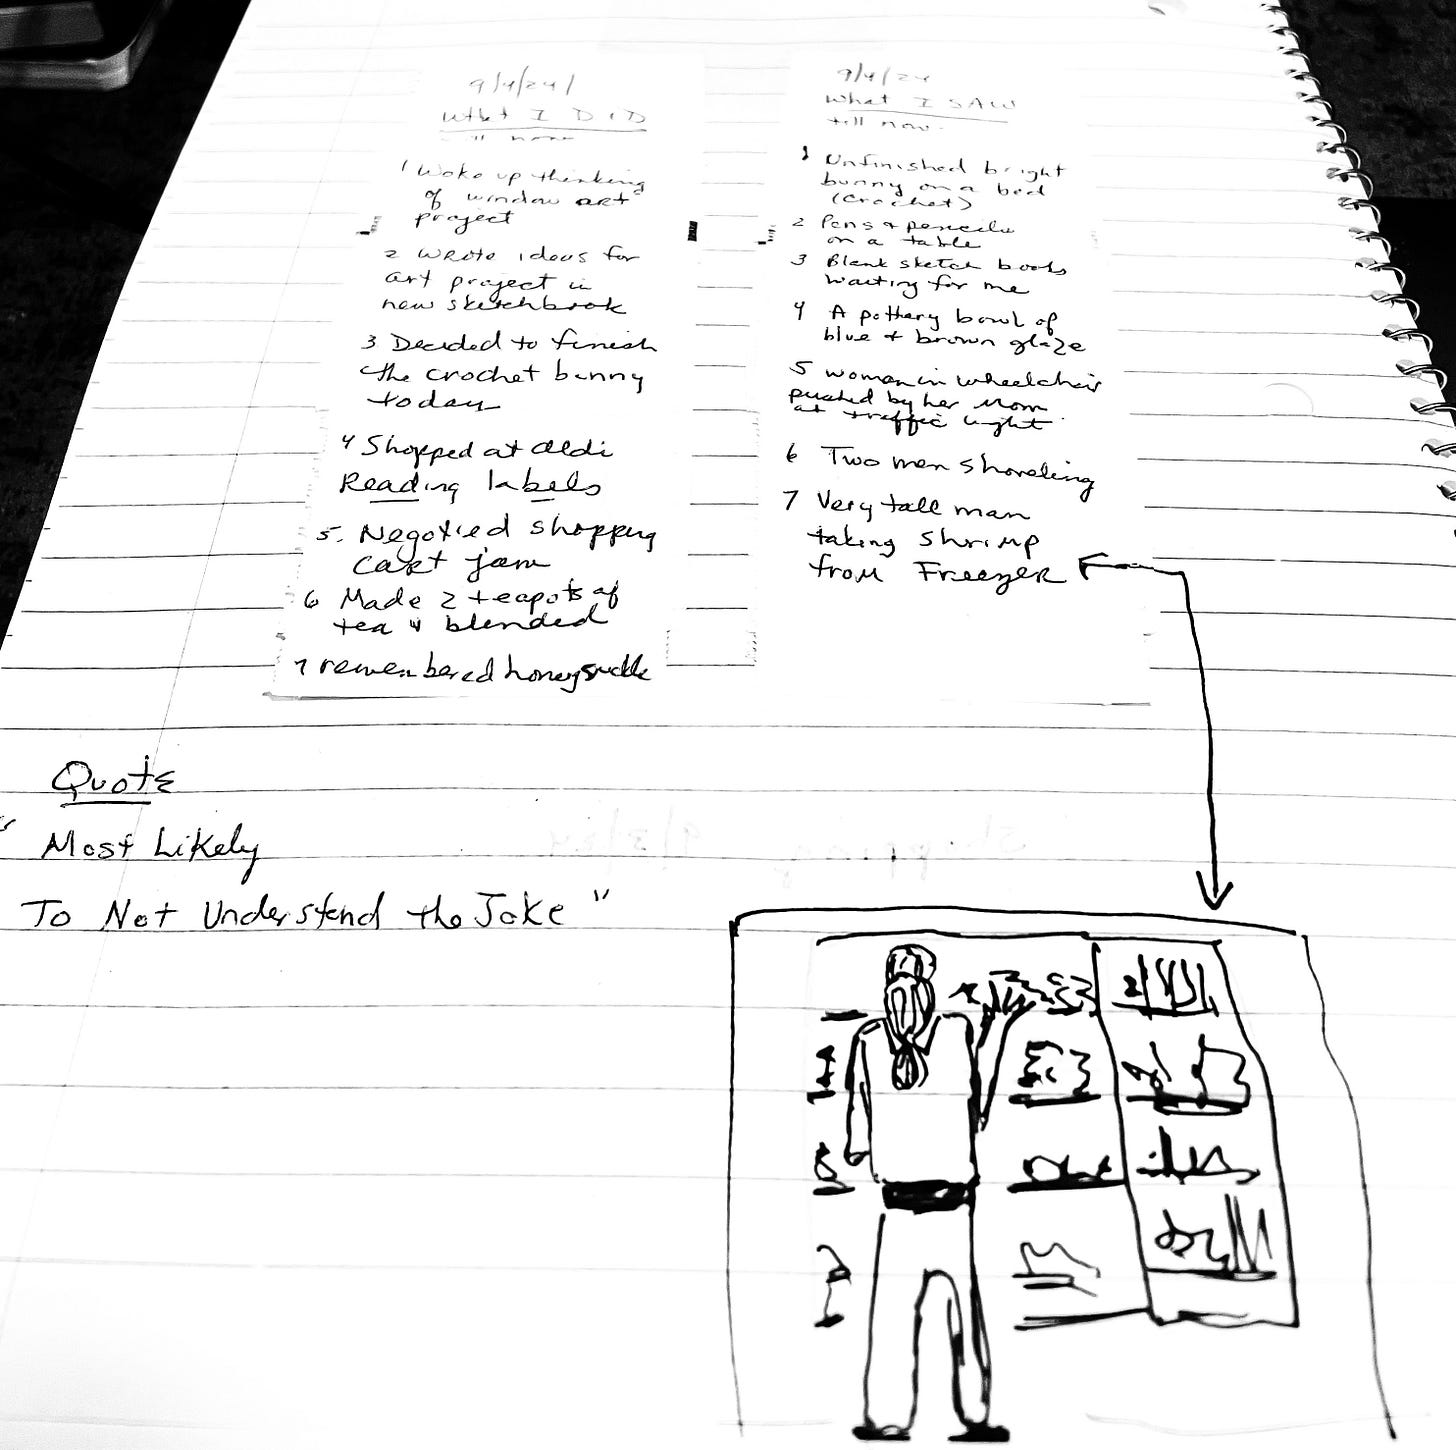 9/4/24
What I DID
till now
1 Woke up thinking
of window art
project
2 Wrote ideas for
art project in
new sketchbook
3 Decided to finish
the crochet bunny
today
4 Shopped at aldi
Reading labels
5. Negotied shopping
cart jam
6 Made 2 teapots of
tea & blended
7 remembered honeysuckle
9/4/24
What I SAW
till now.
1 Unfinished bright
bunny on a bed
(crochet)
2 Pens & pencils
on a table
3 Blank sketch books
waiting for me
4 A pottery bowl of
blue & brown glaze
5 women in wheelchair
pushed by her mom
at traffic light.
6 Two men shoveling
7 Very tall man
taking shrimp
from Freezer
Quote
"Most Likely
To Not Understand the Joke"
Shopping 9/3/24